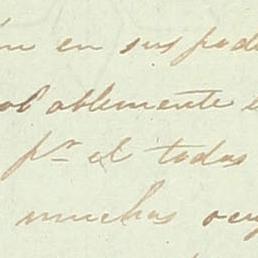 en sus pode
ablemente
pr el todas
muchas